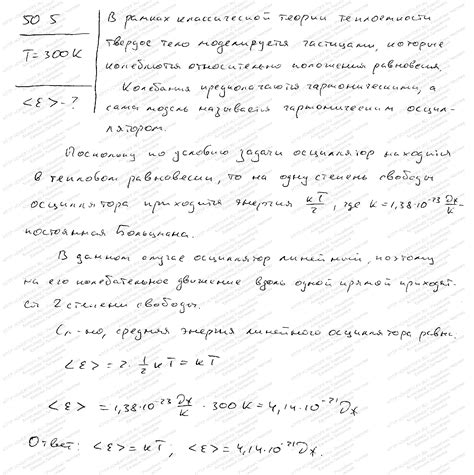 50 5
T = 300 K
<ε> - ?
В рамках классической теории теплоемкости
твердое тело моделируется частицами, которые
колеблются относительно положения равновесия.
Колебания предполагаются гармоническими, а
сама модель называется гармоническим осцил-
лятором.
Поскольку по условию задачи осциллятор находится
в тепловом равновесии, то на одну степень свободы
осциллятора приходится энергия kT/2, где k = 1,38·10⁻²³ Дж/К -
постоянная Больцмана.
В данном случае осциллятор линейный, поэтому
на его колебательное движение вдоль одной прямой приходят-
ся 2 степени свободы.
Сл-но, средняя энергия линейного осциллятора равна:
<ε> = 2 · 1/2 kT = kT
<ε> = 1,38·10⁻²³ Дж/К · 300 К = 4,14·10⁻²¹ Дж
Ответ: <ε> = kT; <ε> = 4,14·10⁻²¹ Дж.